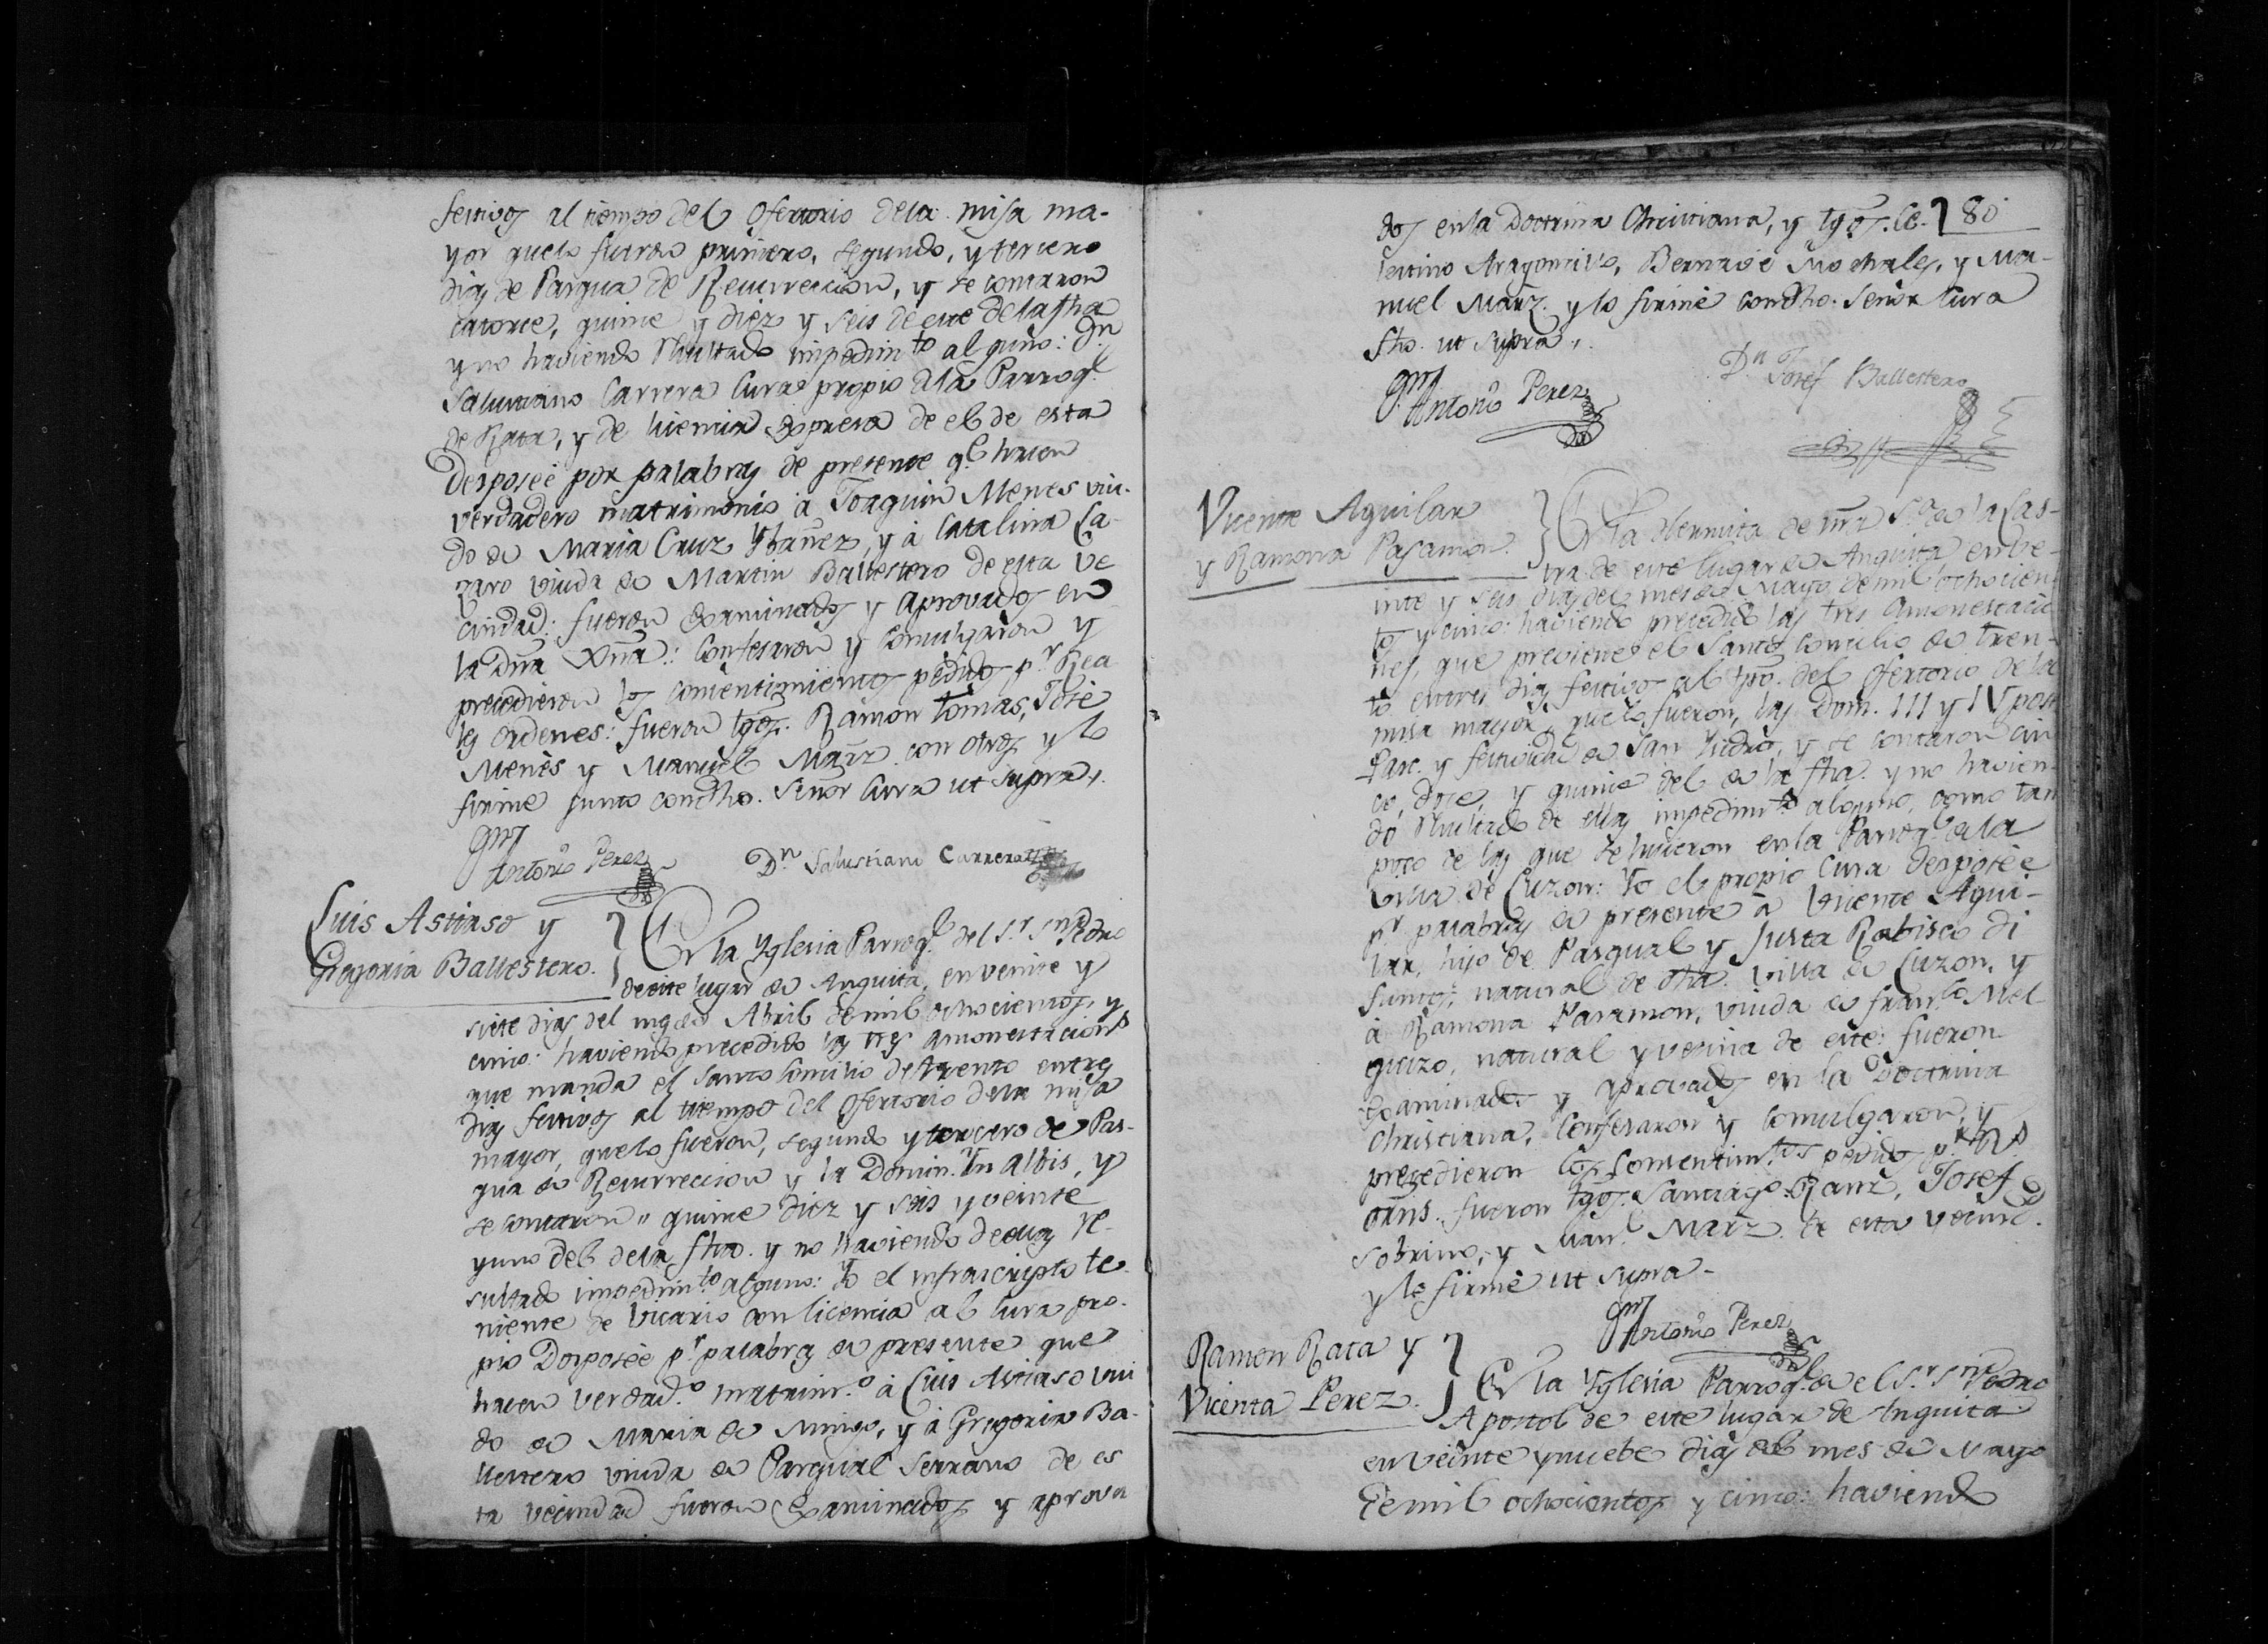 festivos al tiempo del ofertorio dela misa ma-
yor quelo fueron primero, segundo, y tercero
dias de Pasqua de Resurreccion, y se contaron
catorce, quince y diez y seis de este dela fha
y no haviendo resultado impedim.to alguno: D.n
Salustiano Carrera Cura propio dela Parroq.l
de Rata, y de licencia expresa de el de esta
Desposeé por palabras de presente q.e hacen
verdadero matrimonio à Joaquin Menes viu-
do de Maria Cruz Ybañez, y à Catalina La-
zaro viuda de Martin Ballestero de esta ve
cindad: fueron examinados y aprovados en
la Dña Xnna: confesaron y comulgaron y
precedieron los consentimientos pedidos p.r Rea
les ordenes: fueron tgos. Ramon Tomas, José
Menes y Manuel Marz. con otros y lo
firmé junto condho. Señor Cura ut supra,.
Antonio Perez
D.n Salustiano Carrera
Luis Astiaso y
Gregoria Ballestero.
En la Yglesia Parroq.l del S.r S.n Pedro
de este lugar de Anguita, en veinte y
siete dias del mes de Abril de mil ochocientos, y
cinco: haviendo precedido las tres amonestaciones
que manda el Santo Concilio de Trento entres
dias festivos al tiempo del ofertorio dela misa
mayor, quelo fueron, segundo y tercero de Pas-
qua de Resurreccion y la Domin. In Albis, y
se contaron " quince diez y seis y veinte
yuno del dela fha. y no haviendo deellas re-
sultado impedim.to alguno: Yo el infraescripto te-
niente de Vicario con licencia del Cura pro-
pio Desposeé p.r palabras de presente que
hacen verdad.o matrim.o à Luis Astiaso viu
do de Maria de Mingo, y à Gregoria Ba-
llestero viuda de Pasqual Serrano de es
ta vecindad fueron examinados y aprova
dos enla Doctrina Christiana, y tgos. Ce- 80
lestino Aragoncillo, Bernavé Mochales, y Ma-
nuel Marz. y lo firmé condho. Señor Cura
fho. ut supra,.
Antonio Perez
D.n Josef Ballestero
Vicente Aguilar
y Ramona Pasamon.
En la Hermita de nrã S.ra de la Las-
tra de este lugar de Anguita en ve-
inte y seis dias del mes de Mayo de mil ochocien-
tos y cinco: haviendo precedido las tres amonestacio
nes, que previene el Santo Concilio de Tren-
to entres dias festivos al tpo. del ofertorio de la
misa mayor, quelo fueron, las Dom. III y IV post
Pasc. y festividad de San Ysidro, y se contaron cin
co, doce, y quince del de la fha. y no havien-
do resultado de ellas impedim.to alguno, como tam
poco de las que se hicieron en la Parroq.l dela
Villa de Luzon: Yo el propio Cura Desposeé
p.r palabras de presente à Vicente Agui-
lar, hijo de Pasqual y Justa Rabisco di
funtos, natural de dha. Villa de Luzon, y
à Ramona Pasamon, viuda de Fran.co Mel
guizo, natural y vecina de este: fueron
examinados y aprovados en la Doctrina
Christiana, confesaron y comulgaron, y
precedieron los consentim.tos pedidos p.r R.s
orñs. fueron tgos. Santiago Ranz, Josef
Sobrino, y Man.l Marz. de esta vecind.
y lo firmé ut supra-
Antonio Perez
Ramon Rata y
Vicenta Perez.
En la Yglesia Parroq.l de el S.r S.n Pedro
Apostol de este lugar de Anguita
en veinte y nuebe dias del mes de Mayo
de mil ochocientos y cinco: haviendo